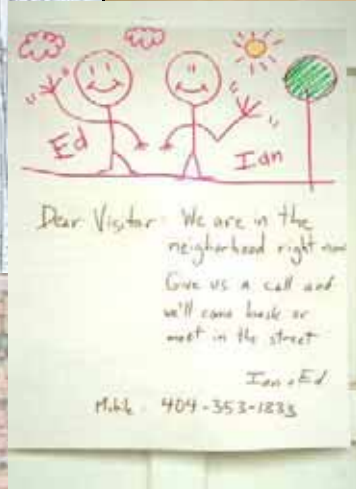 Ed
Ian
Dear Visitor: We are in the
neighorhood right now
Give us a call and
we'll come back or
meet in the street
Ian + Ed
Mobile - 404-353-1833